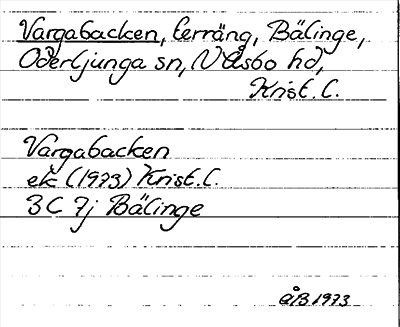 Vargabacken, terräng, Bälinge,
Oderljunga sn, N Åsbo hd,
Krist. l.
Vargabacken
ek (1973) Krist. l.
3C 7j Bälinge
ÅB 1973